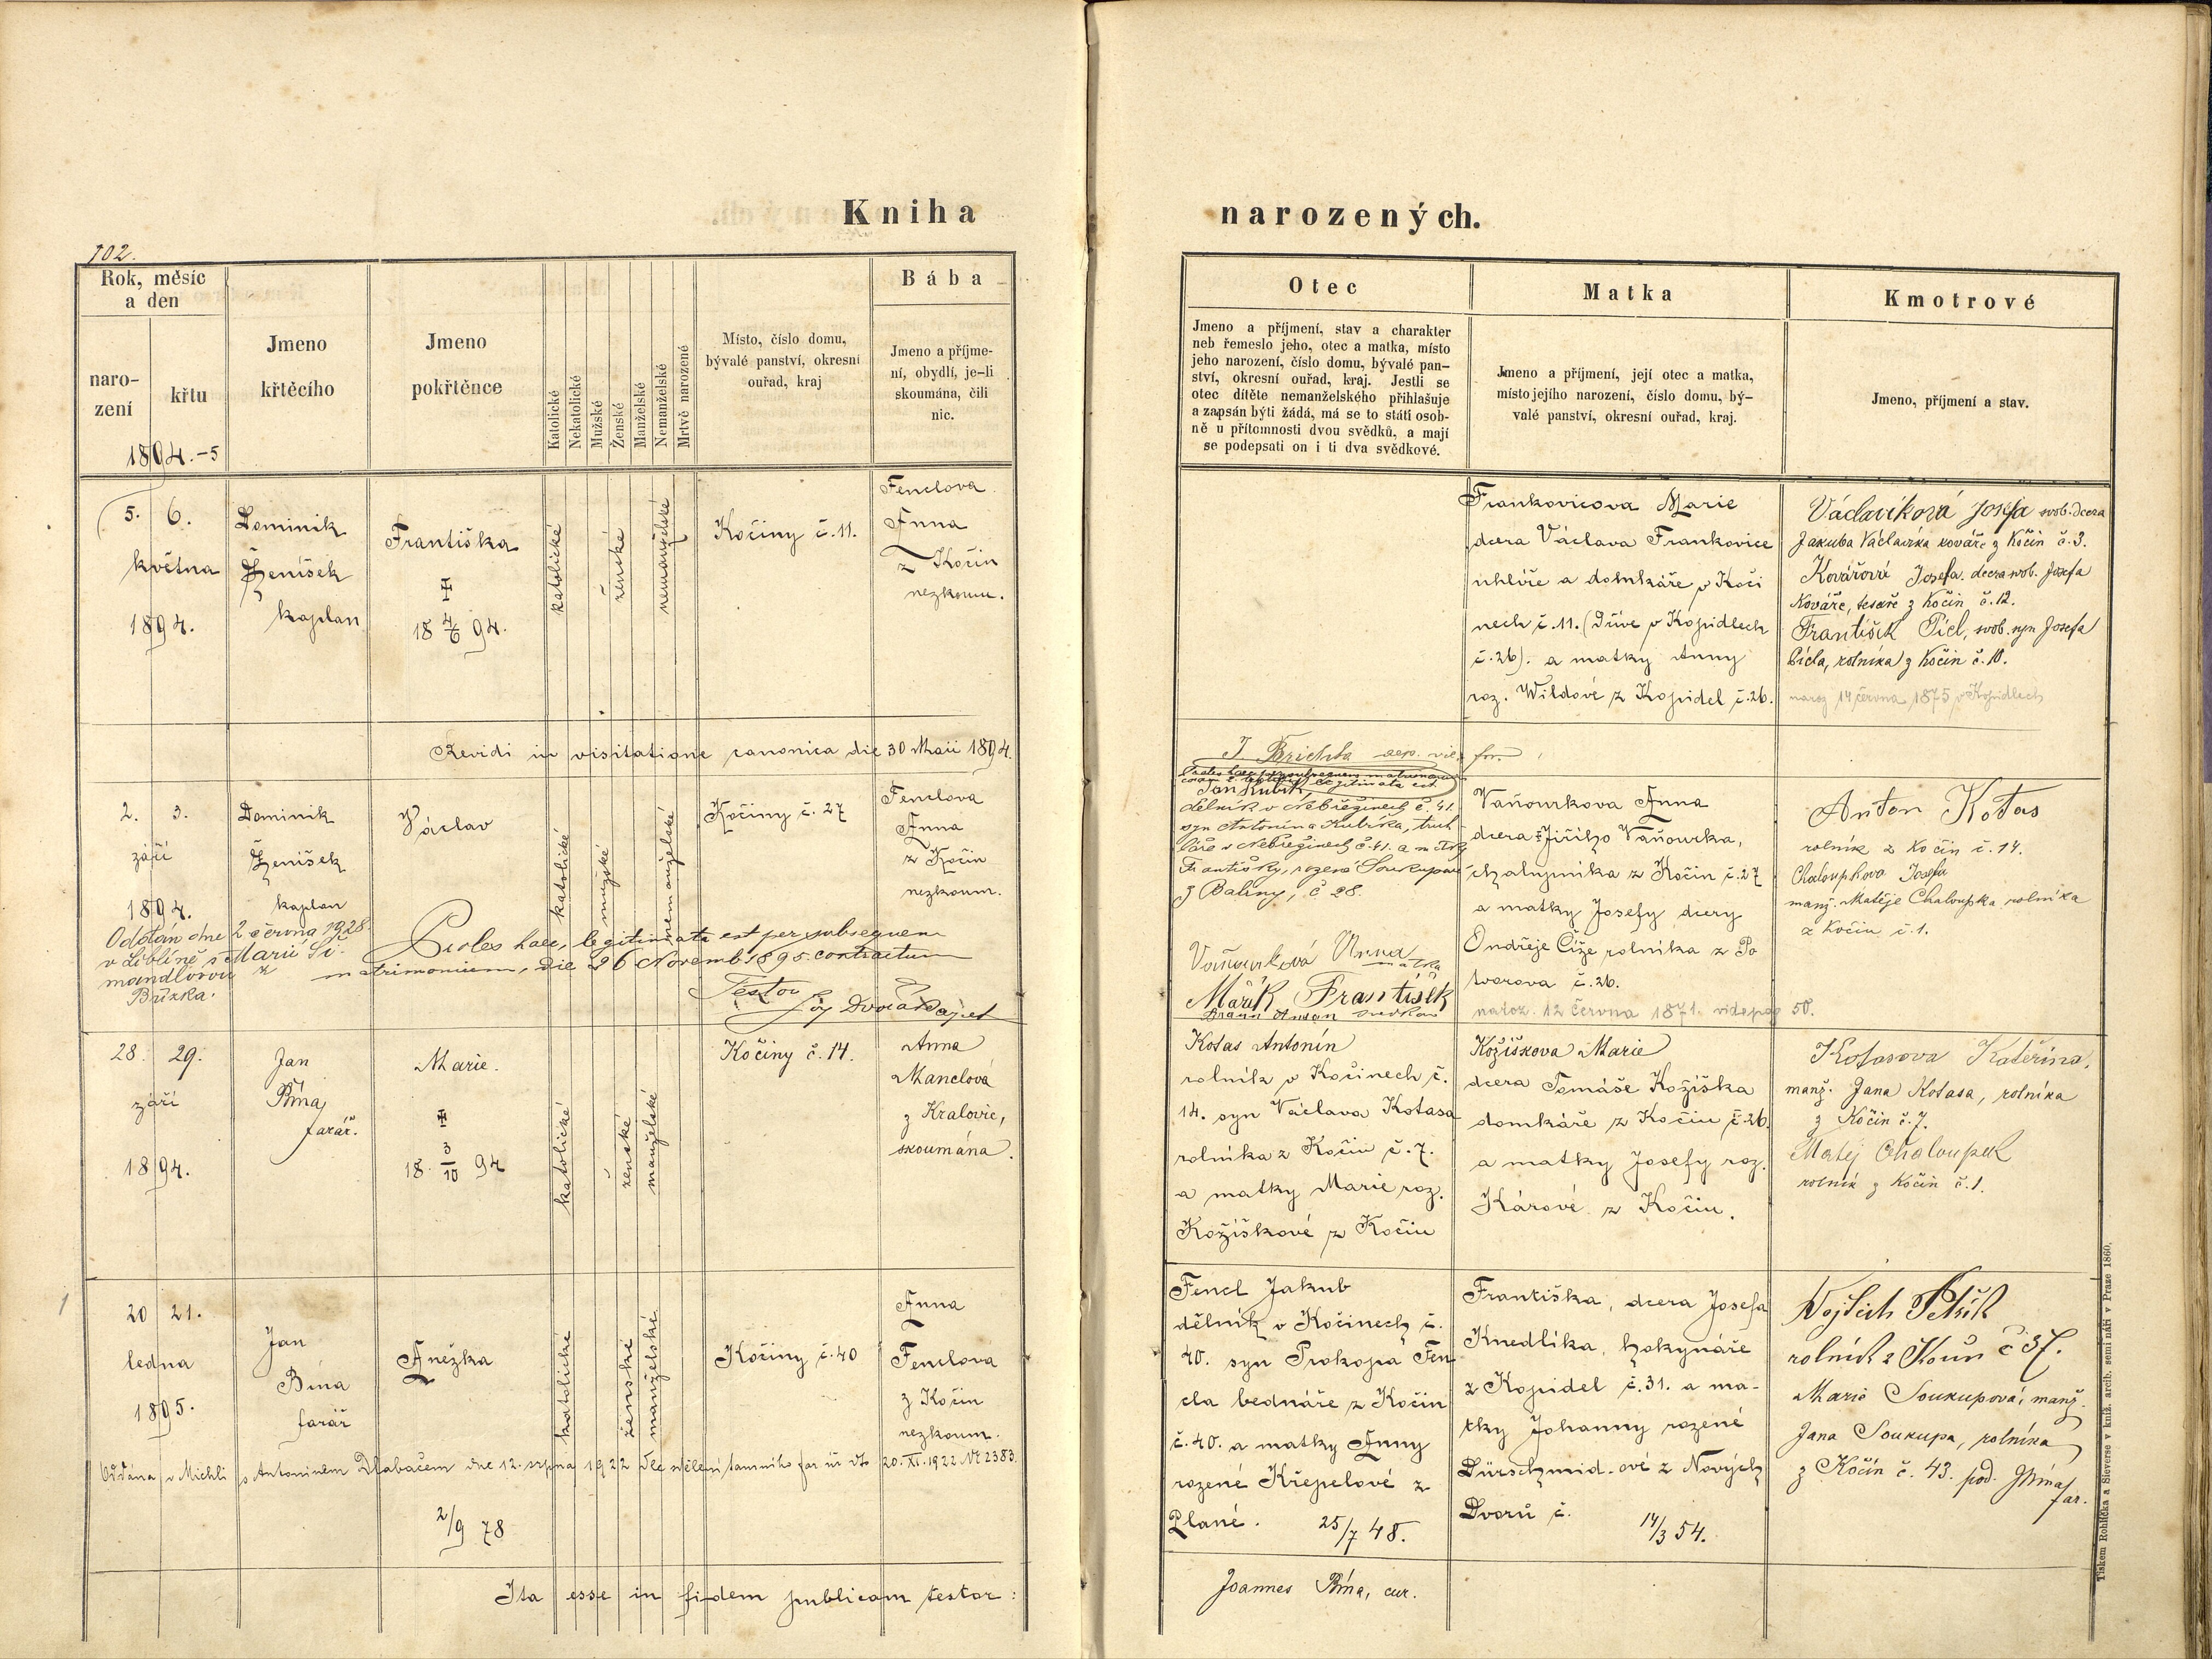 Kniha
narozených.
102.
Rok, měsíc
a den
naro-
zení
křtu
1894.-5
Jmeno
křtěcího
Jmeno
pokřtěnce
Katolické
Nekatolické
Mužské
Ženské
Manželské
Nemanželské
Mrtvě narozené
Místo, číslo domu,
bývalé panství, okresní
ouřad, kraj
Bába
Jmeno a příjme-
ní, obydlí, je-li
skoumána, čili
nic.
Otec
Jmeno a příjmení, stav a charakter
neb řemeslo jeho, otec a matka, místo
jeho narození, číslo domu, bývalé pan-
ství, okresní ouřad, kraj. Jestli se
otec dítěte nemanželského přihlašuje
a zapsán býti žádá, má se to státi osob-
ně u přítomnosti dvou svědků, a mají
se podepsati on i ti dva svědkové.
Matka
Jmeno a příjmení, její otec a matka,
místo jejího narození, číslo domu, bý-
valé panství, okresní ouřad, kraj.
Kmotrové
Jmeno, příjmení a stav.
5. 6.
května
1894.
Dominik
Ženíšek
kaplan
Františka
18 4/6 94.
katolické
ženské
nemanželské
Kočiny č. 11.
Fenclova
Anna
z Kočin
nezkoum.
Frankovicova Marie
dcera Václava Frankovice
uhlíře a domkáře v Koči
nech č. 11. (Dříve v Kopidlech
č. 26). a matky Anny
roz. Wildové z Kopidel č. 26.
Václavíková Josefa svob. dcera
Jakuba Václavíka kováře z Kočin č. 3.
Kovářová Josefa. dcera svob. Josefa
Kováře, tesaře z Kočin č. 12.
František Picl, svob. syn Josefa
Picla, rolníka z Kočin č. 10.
naroz 14 června 1875 v Kopidlech
Revidi in visitatione canonica die 30 Maii 1894.
J. Brichta aep. vic. for.
2. 3.
září
1894.
Dominik
Ženíšek
kaplan
Václav
katolické
mužské
nemanželské
Kočiny č. 27
Fenclova
Anna
z Kočin
nezkoum.
Oddán dne 2 června 1928
v Liblíně s Marií Ši-
mandlovou z
Břízka.
Proles haec, legitimata est per subsequens
matrimonium, die 26 Novemb 1895 contractum
Testor
Jan Kubík,
dělník v Nebřežinech č. 41.
syn Antonína Kubíka, truh
láře v Nebřežinech č. 41. a matky
Františky, rozené Soukupové
z Baliny, č 28.
Vaňourková Anna
matka
Mařík František
svědkové
Vaňourkova Anna
dcera Jiřího Vaňourka,
chalupníka z Kočin č. 27
a matky Josefy dcery
Ondřeje Číže rolníka z Po
tvorova č. 26.
naroz. 12 června 1871. vide pag 50.
Anton Kotas
rolník z Kočin č. 14.
Chaloupkova Josefa
manž. Matěje Chaloupka rolníka
z Kočin č. 1.
28. 29.
září
1894.
Jan
Bína,
farář.
Marie.
18 3/10 94
katolické
ženské
manželské
Kočiny č. 14.
Anna
Manclová
z Kralovic,
skoumána.
Kotas Antonín
rolník v Kočinech č.
14. syn Václava Kotasa
rolníka z Kočin č. 7.
a matky Marie roz.
Kožíškové z Kočin
Kožíškova Marie
dcera Tomáše Kožíška
domkáře z Kočin č. 26.
a matky Josefy roz.
Kárové z Kočin.
Kotasova Kateřina,
manž. Jana Kotasa, rolníka
z Kočin č. 7.
Matěj Chaloupek
rolník z Kočin č. 1.
20 21.
ledna
1895.
Jan
Bína
farář
Anežka
katolické
ženské
manželské
Kočiny č. 40
Anna
Fenclova
z Kočin
nezkoum.
Oddána v Michli s Antonínem Dlabačem dne 12. srpna 1922 dle sdělení tamního far. úř. dto 20. XI. 1922 No 2383.
2/9 78
Fencl Jakub
dělník v Kočinech č.
40. syn Prokopa Fen
cla bednáře z Kočin
č. 40. a matky Anny
rozené Křepelové z
Plané. 25/7 48.
Františka, dcera Josefa
Knedlíka, hokynáře
z Kopidel č. 31. a ma-
tky Johanny rozené
Dürschmid-ové z Nových
Dvorů č. 14/3 54.
Vojtěch Petřík
rolník z Kočin č 37.
Marie Soukupová, manž.
Jana Soukupa, rolníka
z Kočin č. 43. pod. JBína
far.
Ita esse in fidem publicam testor:
Joannes Bína, cur.
Tiskem Rohlíčka a Sieverse v kníž. arcib. semináři v Praze 1860.